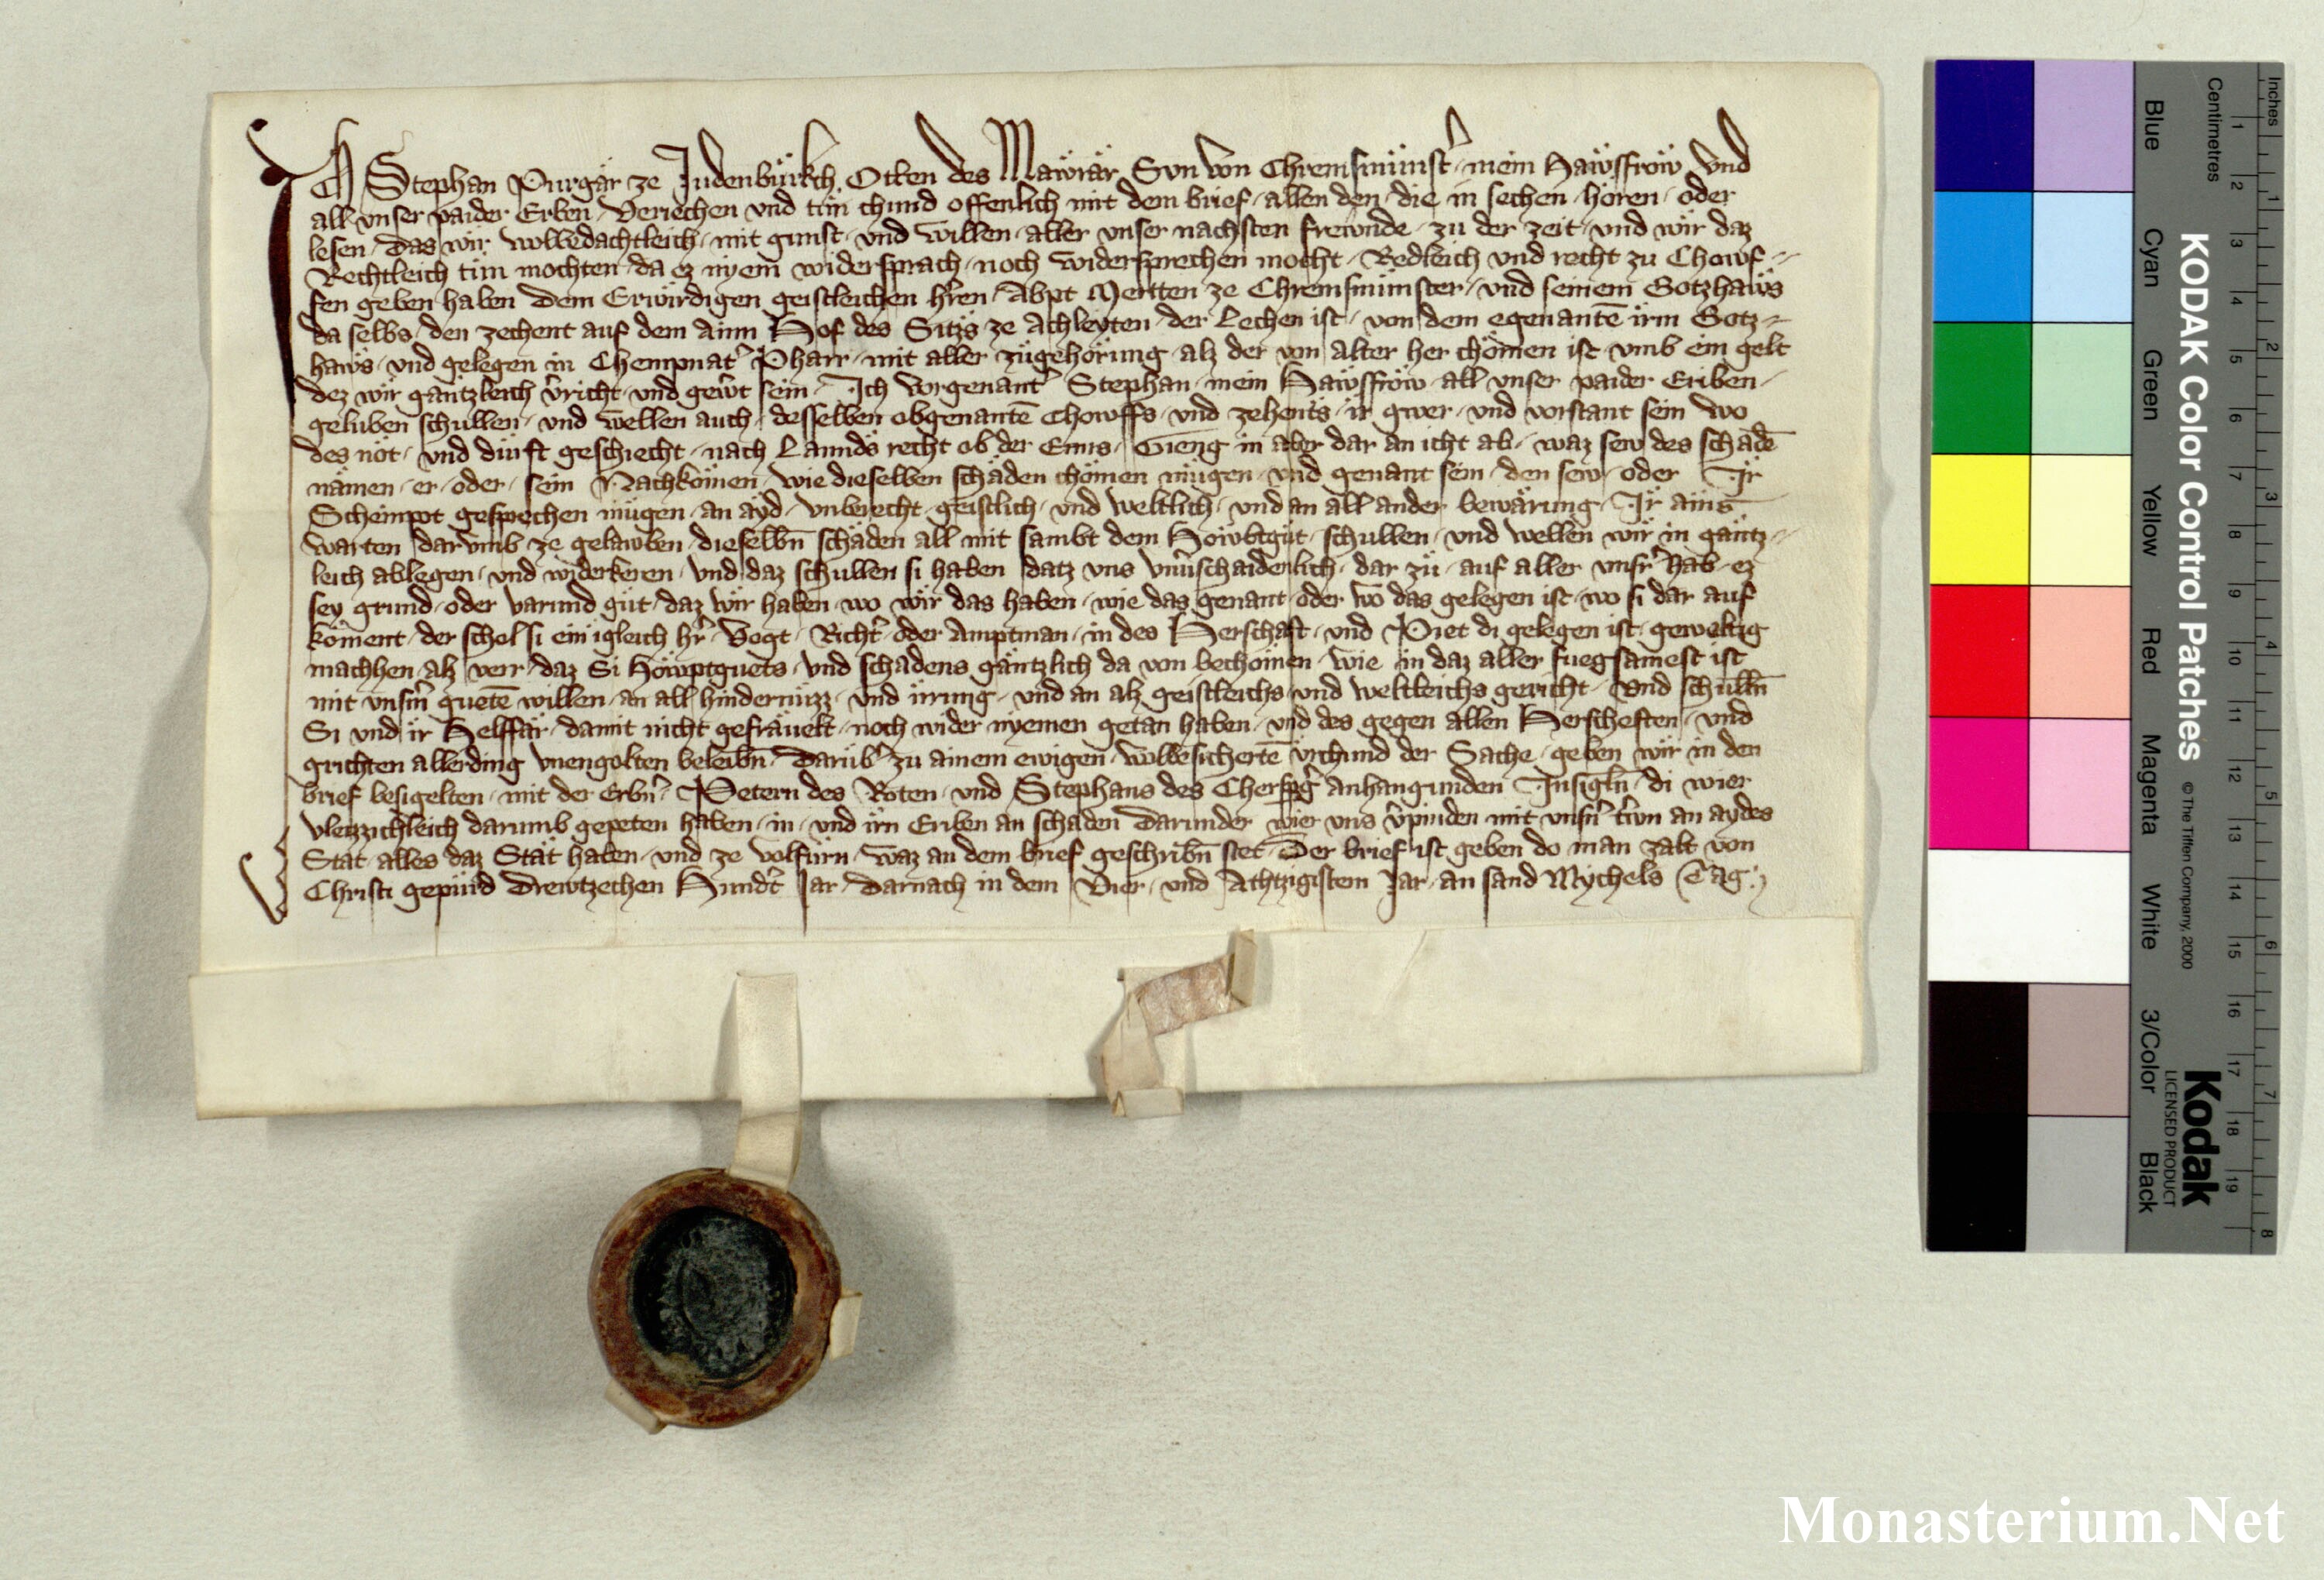 ICh Stephan Purgär ze Judenbürkch, Otten des Mawrär Svn von Chremsmünst᷑, mein Hawsfrow Vnd
all vnser paider Erben, Veriechen vnd tün chund offenlich mit dem brief, allen den, die in sechen, hören, oder
lesen, das wir wolbedachtleich, mit gunst, vnd willen, aller vnser nachsten frewnde, zu der zeit, vnd wir daz
Rechtleich tün mochten, da ez nyem widersprach, noch widersprechen mocht, Redleich vnd recht zu Chowf-
fen geben haben dem Erwirdigen geistleichen h᷑ren, Abpt Mertten ze Chremsmünster, vnd seinem Gotzhaws
da selbs, den zechent auf dem ainn Hof des Sitzs ze Achleyten, der Lechen ist, von dem egenantē irm Gotz-
haws, vnd gelegen in Chempnat᷑ Pharr, mit aller zügehörung, alz der von alter her chömen ist, vmb ein gelt
dez wir gäntzleich v᷑richt, vnd gew᷑t sein, Ich vorgenant᷑ Stephan, mein Hawsfrow, all vnser paider Eriben,
geluben schullen, vnd wellen auch, desselben obgenantē Chowffs, vnd zehents, ir gwer, vnd vorstant sein wo
des nöt, vnd dürft geschiecht, nach Lannds recht ob der Enns, Gieng in aber dar an icht ab, waz sew des schadē
nämen, er, oder, sein Nachkömen, wie dieselben schäden chömen mügen, vnd genant sein, den sew, oder Ir
Scheinpot gesprechen mügen, an ayd, vnberecht, geistlich, vnd weltlich, vnd an all ander bewärung, Ir ains
warten dar vmb ze gelawben, dieselbn̄ schäden all mit sambt dem Höwbtgüt, schullen, vnd wellen wir in gäntz-
leich ablegen, vnd widerkeren, vnd daz schullen si haben datz vns vnu᷑schaidenlich, dar zü, auf aller vnsr᷑ hab, ez
sey grund, oder varund güt, daz wir haben, wo wir das haben, wie das genant, oder wo das gelegen ist, wo si dar auf
köment, der schol si ein igleich h᷑r, Vogt, Richt᷑, oder Amptman, in des Herschaft, vnd Piet di gelegen ist, geweltig
machhen, alz verr, daz Si Höwptguets, vnd schadens gäntzlich da von bechömen, wie in daz aller fuegsamest ist
mit vnsm᷑ guetē willen, an all hindernüzz, vnd irrung, vnd an alz geistleichs, vnd weltleichs gericht, Vnd schulln̄
Si vnd ir Helffär, damit nicht gefräuelt, noch wider nyemen getan haben, vnd des gegen allen Herscheften, vnd
grichten allerding vnengolten beleibn̄, Darüb᷑ zu ainem ewigen, wolbesichertē vrchund der Sache, geben wir in den
brief besigelten, mit der Erbn᷑, Petern des Roten, vnd Stephans des anhangunden Insigln̄, di wier
vleizzichleich darumb gepeten haben, in, vnd irn Eriben an schaden Darunder wier vns v᷑pinden mit vnsn᷑ tr᷑wn an aydes
Stat, alles daz Stät haben, vnd ze volfürn, waz an dem brief geschribn̄ stet, Der brief ist geben do man zalt von
Christi gepürd Drewtzechen Hundt᷑ Jar, Darnach in dem Vier, vnd Achtzigistem Jar, an sand Mychels Tag.
Inches
Centimetres
1 2 3 4 5 6 7 8 9 10 11 12 13 14 15 16 17 18 19
1 2 3 4 5 6 7 8
KODAK Color Control Patches
© The Tiffen Company, 2000
Kodak
LICENSED PRODUCT
Blue
Cyan
Green
Yellow
Red
Magenta
White
3/Color
Black
Monasterium.Net